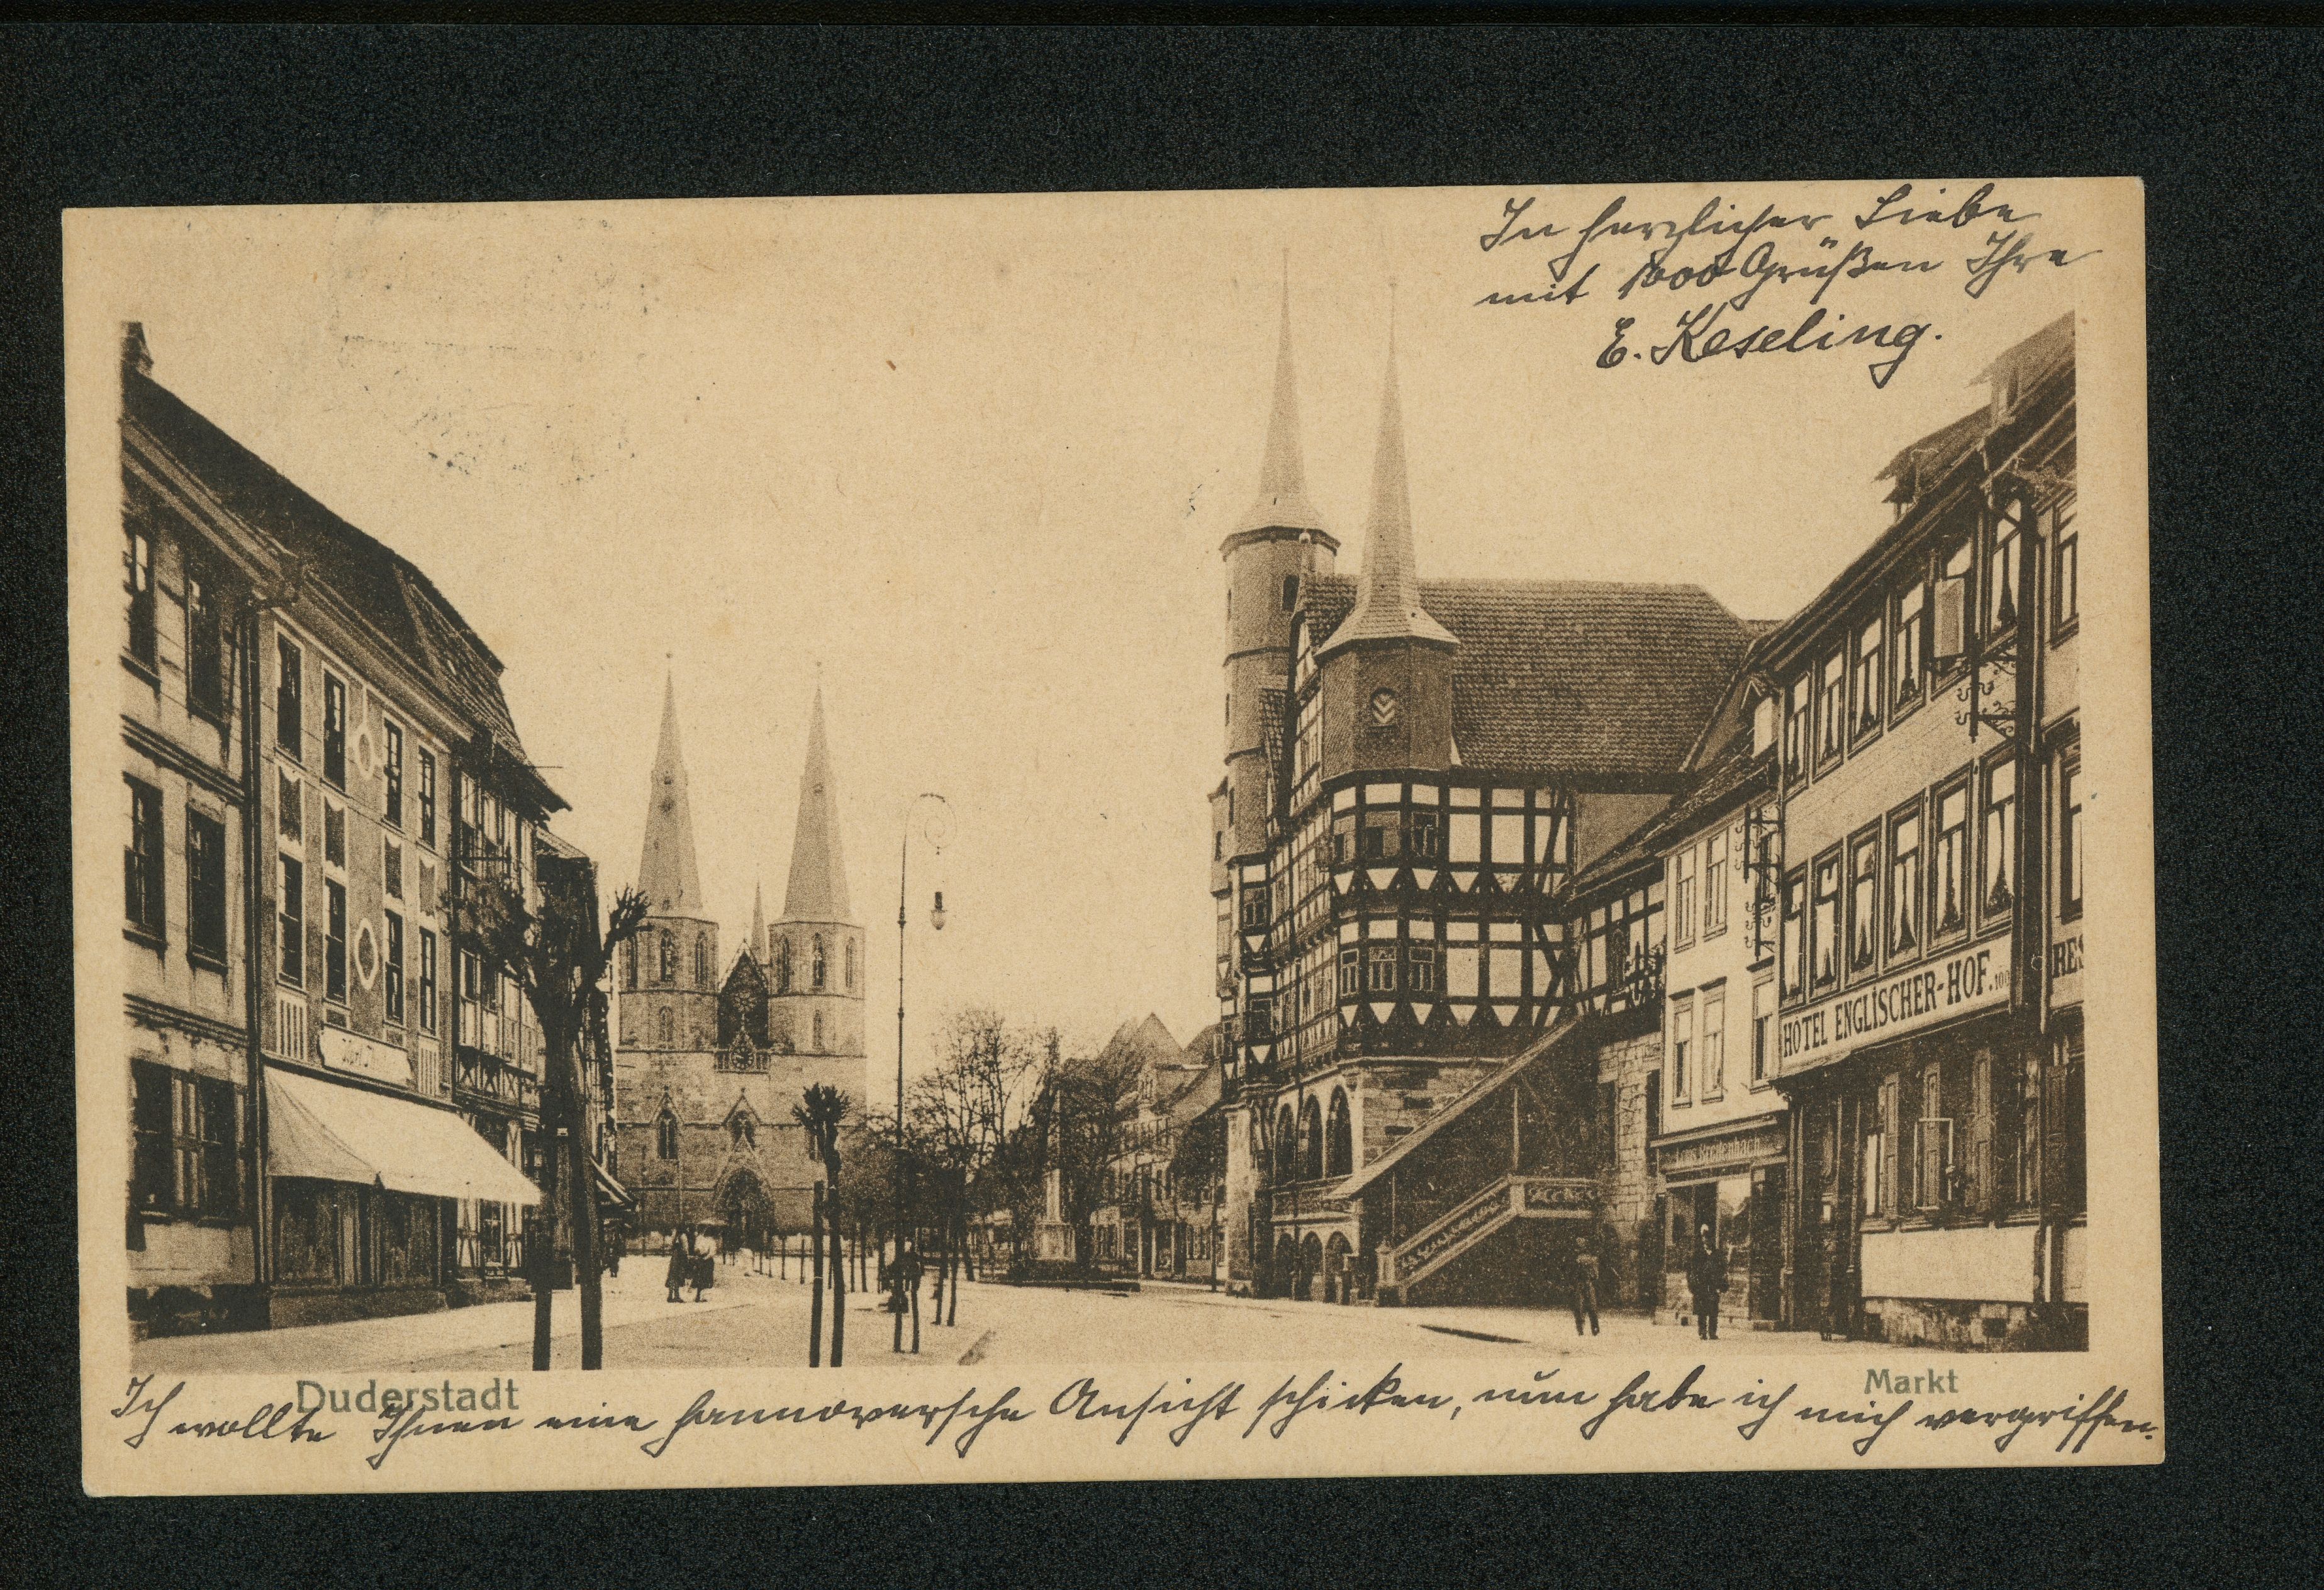 In herzlicher Liebe
mit 1000 Grüßen Ihre
E. Keseling.
HOTEL ENGLISCHER-HOF.
RES
Breitenbach
Duderstadt
Markt
Ich wollte Ihnen eine hannoversche Ansicht schicken, nun habe ich mich vergriffen.